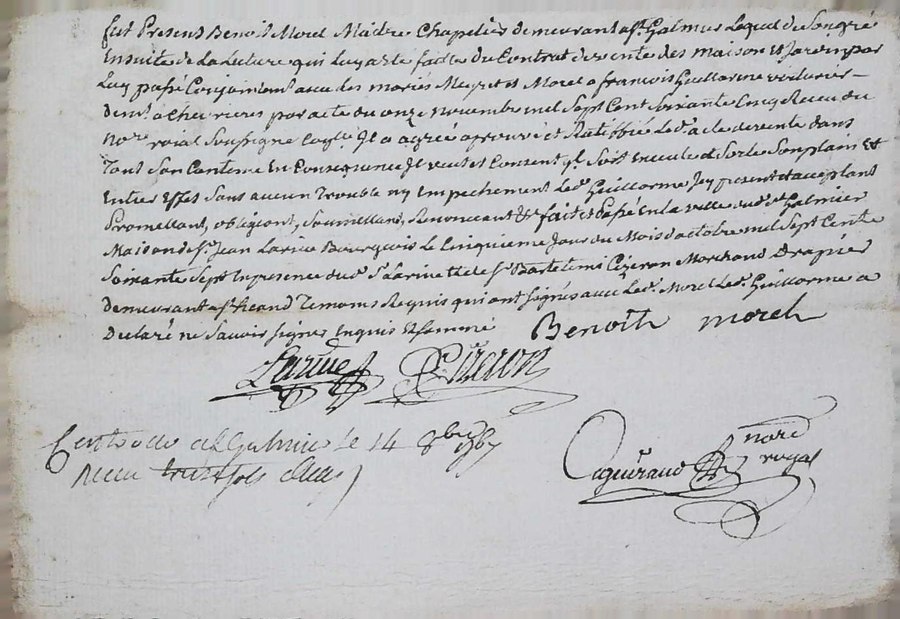 fut Present Benoist Morel Maitre Chapelier demeurant a St. Galmier Lequel de Son gré
Ensuite de La Lecture qui Luy a eté faite du Contrat de vente des maison Et Jardin par
Luy passé Conjointemt. avec des mariés Meyret et Morel a francois Guillorme voiturier
demt. a Chevrieres par acte du onze novembre mil Sept Cent Soixante Cinq Receu du
nore. roial Soussigné Il a agréé aprouvé et Ratiffié Led. acte de vente dans
Tout Son Contenu En Consequance Il veut et Consent ql. Soit Executé et Sorte Son plain Et
Entier Effet Sans aucun Trouble ny Empechement Led. Guillorme Icy present et acceptant
Promettant, obligeant, Soumettant, Renonceant &c fait et Passé En la ville dud. St. Galmier
Maison de Sr. Jean Larive Bourgeois Le Cinquieme Jour du Mois d'octobre mil Sept Cents
Soixante Sept En presence dud. Sr. Larive et de Sr. Bartelemi Cizeron Marchand Drapier
demeurant a St. Temoins Requis qui ont signés avec Led. Morel Led. Guillorme a
Declaré ne Savoir signer Enquis Et Sommé
Benoith morel
Larive Cizeron
Controllé a St Galmier le 14 8bre 1767
Receu sols
nore
royal